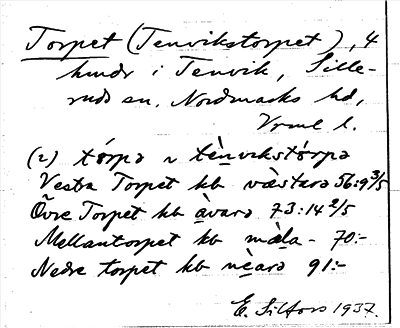 Torpet (Tenvikstorpet), 4
hmdr i Tenvik, Sille-
ruds sn, Nordmarks hd,
Vrml l.
(2) tórpə ~ tènvikstórpə
Vestra Torpet kb væ̀starə 56:9 3/5
Övre Torpet kb àvarə 73:14 2/5
Mellantorpet kb mæ̀la- 70:-
Nedre torpet kb nèarə 91:-
E. 1937.